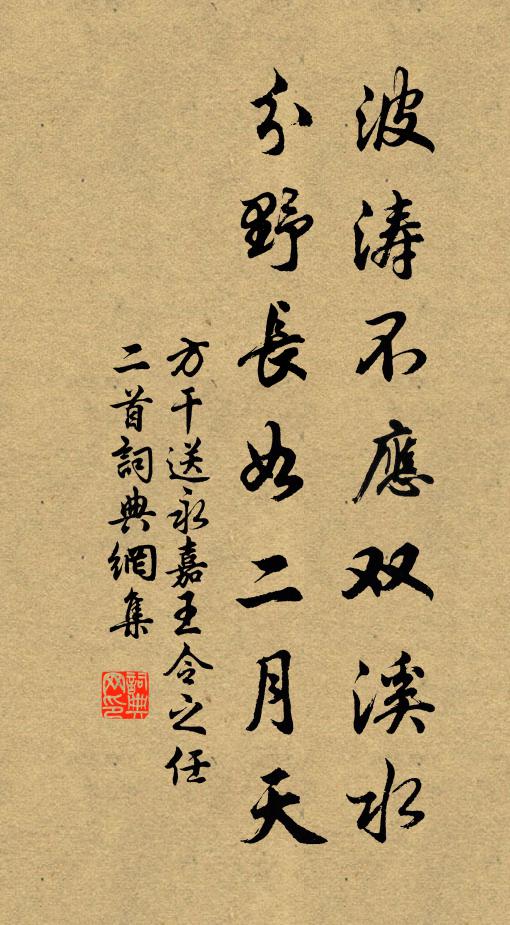 波涛不應双溪水
分野長如二月天
方干送永嘉王令之任
二首詞典網集
詞典網印